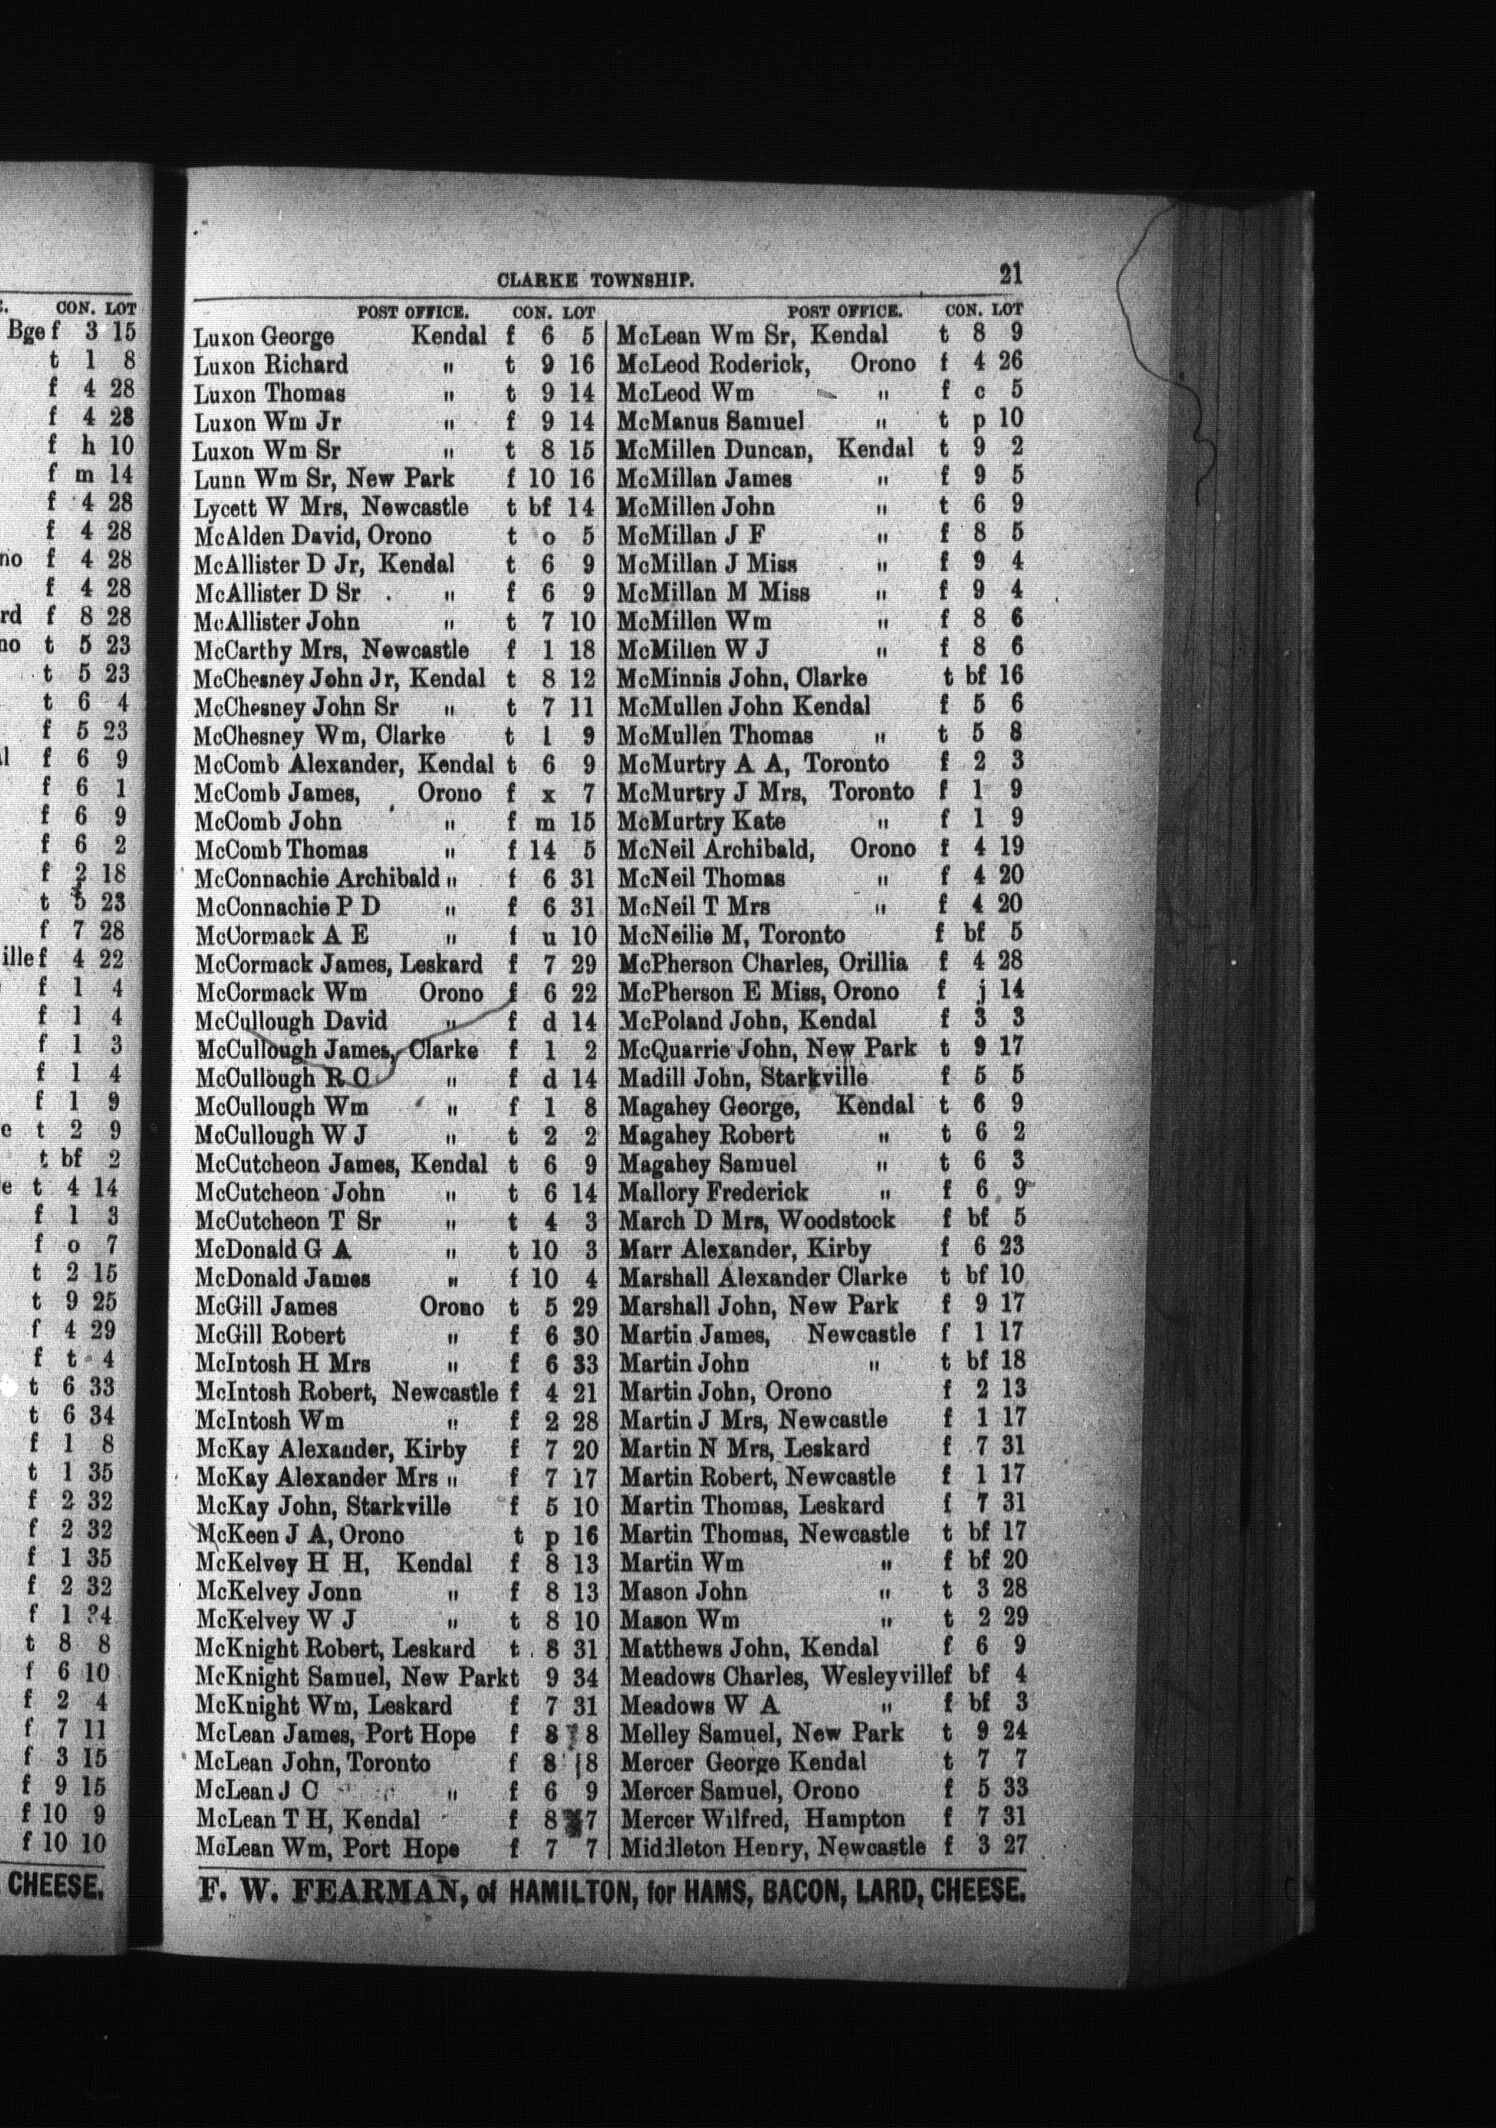 E. CON. LOT
Bge f 3 15
t 1 8
f 4 28
f 4 28
f h 10
f m 14
f 4 28
f 4 28
no f 4 28
f 4 28
rd f 8 28
no t 5 23
t 5 23
t 6 4
f 5 23
al f 6 9
f 6 1
f 6 9
f 6 2
f 2 18
t 5 23
f 7 28
ille f 4 22
f 1 4
f 1 4
f 1 3
f 1 4
f 1 9
e t 2 9
t bf 2
e t 4 14
f 1 3
f o 7
t 2 15
t 9 25
f 4 29
f t 4
t 6 33
t 6 34
f 1 8
t 1 35
f 2 32
f 2 32
f 1 35
f 2 32
f 1 34
t 8 8
f 6 10
f 2 4
f 7 11
f 3 15
f 9 15
f 10 9
f 10 10
CHEESE.
CLARKE TOWNSHIP. 21
POST OFFICE. CON. LOT
Luxon George Kendal f 6 5
Luxon Richard " t 9 16
Luxon Thomas " t 9 14
Luxon Wm Jr " f 9 14
Luxon Wm Sr " t 8 15
Lunn Wm Sr, New Park f 10 16
Lycett W Mrs, Newcastle t bf 14
McAlden David, Orono t o 5
McAllister D Jr, Kendal t 6 9
McAllister D Sr " f 6 9
McAllister John " t 7 10
McCarthy Mrs, Newcastle f 1 18
McChesney John Jr, Kendal t 8 12
McChesney John Sr " t 7 11
McChesney Wm, Clarke t 1 9
McComb Alexander, Kendal t 6 9
McComb James, Orono f x 7
McComb John " f m 15
McComb Thomas " f 14 5
McConnachie Archibald " f 6 31
McConnachie P D " f 6 31
McCormack A E " f u 10
McCormack James, Leskard f 7 29
McCormack Wm Orono f 6 22
McCullough David " f d 14
McCullough James, Clarke f 1 2
McCullough R C " f d 14
McCullough Wm " f 1 8
McCullough W J " t 2 2
McCutcheon James, Kendal t 6 9
McCutcheon John " t 6 14
McCutcheon T Sr " t 4 3
McDonald G A " t 10 3
McDonald James " f 10 4
McGill James Orono t 5 29
McGill Robert " f 6 30
McIntosh H Mrs " f 6 33
McIntosh Robert, Newcastle f 4 21
McIntosh Wm " f 2 28
McKay Alexander, Kirby f 7 20
McKay Alexander Mrs " f 7 17
McKay John, Starkville f 5 10
McKeen J A, Orono t p 16
McKelvey H H, Kendal f 8 13
McKelvey Jonn " f 8 13
McKelvey W J " t 8 10
McKnight Robert, Leskard t 8 31
McKnight Samuel, New Park t 9 34
McKnight Wm, Leskard f 7 31
McLean James, Port Hope f 8 8
McLean John, Toronto f 8 8
McLean J C " f 6 9
McLean T H, Kendal f 8 7
McLean Wm, Port Hope f 7 7
POST OFFICE. CON. LOT
McLean Wm Sr, Kendal t 8 9
McLeod Roderick, Orono f 4 26
McLeod Wm " f c 5
McManus Samuel " t p 10
McMillen Duncan, Kendal t 9 2
McMillan James " f 9 5
McMillen John " t 6 9
McMillan J F " f 8 5
McMillan J Miss " f 9 4
McMillan M Miss " f 9 4
McMillen Wm " f 8 6
McMillen W J " f 8 6
McMinnis John, Clarke t bf 16
McMullen John Kendal f 5 6
McMullen Thomas " t 5 8
McMurtry A A, Toronto f 2 3
McMurtry J Mrs, Toronto f 1 9
McMurtry Kate " f 1 9
McNeil Archibald, Orono f 4 19
McNeil Thomas " f 4 20
McNeil T Mrs " f 4 20
McNeilie M, Toronto f bf 5
McPherson Charles, Orillia f 4 28
McPherson E Miss, Orono f j 14
McPoland John, Kendal f 3 3
McQuarrie John, New Park t 9 17
Madill John, Starkville f 5 5
Magahey George, Kendal t 6 9
Magahey Robert " t 6 2
Magahey Samuel " t 6 3
Mallory Frederick " f 6 9
March D Mrs, Woodstock f bf 5
Marr Alexander, Kirby f 6 23
Marshall Alexander Clarke t bf 10
Marshall John, New Park f 9 17
Martin James, Newcastle f 1 17
Martin John " t bf 18
Martin John, Orono f 2 13
Martin J Mrs, Newcastle f 1 17
Martin N Mrs, Leskard f 7 31
Martin Robert, Newcastle f 1 17
Martin Thomas, Leskard f 7 31
Martin Thomas, Newcastle t bf 17
Martin Wm " f bf 20
Mason John " t 3 28
Mason Wm " t 2 29
Matthews John, Kendal f 6 9
Meadows Charles, Wesleyville f bf 4
Meadows W A " f bf 3
Melley Samuel, New Park t 9 24
Mercer George Kendal t 7 7
Mercer Samuel, Orono f 5 33
Mercer Wilfred, Hampton f 7 31
Middleton Henry, Newcastle f 3 27
F. W. FEARMAN, of HAMILTON, for HAMS, BACON, LARD, CHEESE.